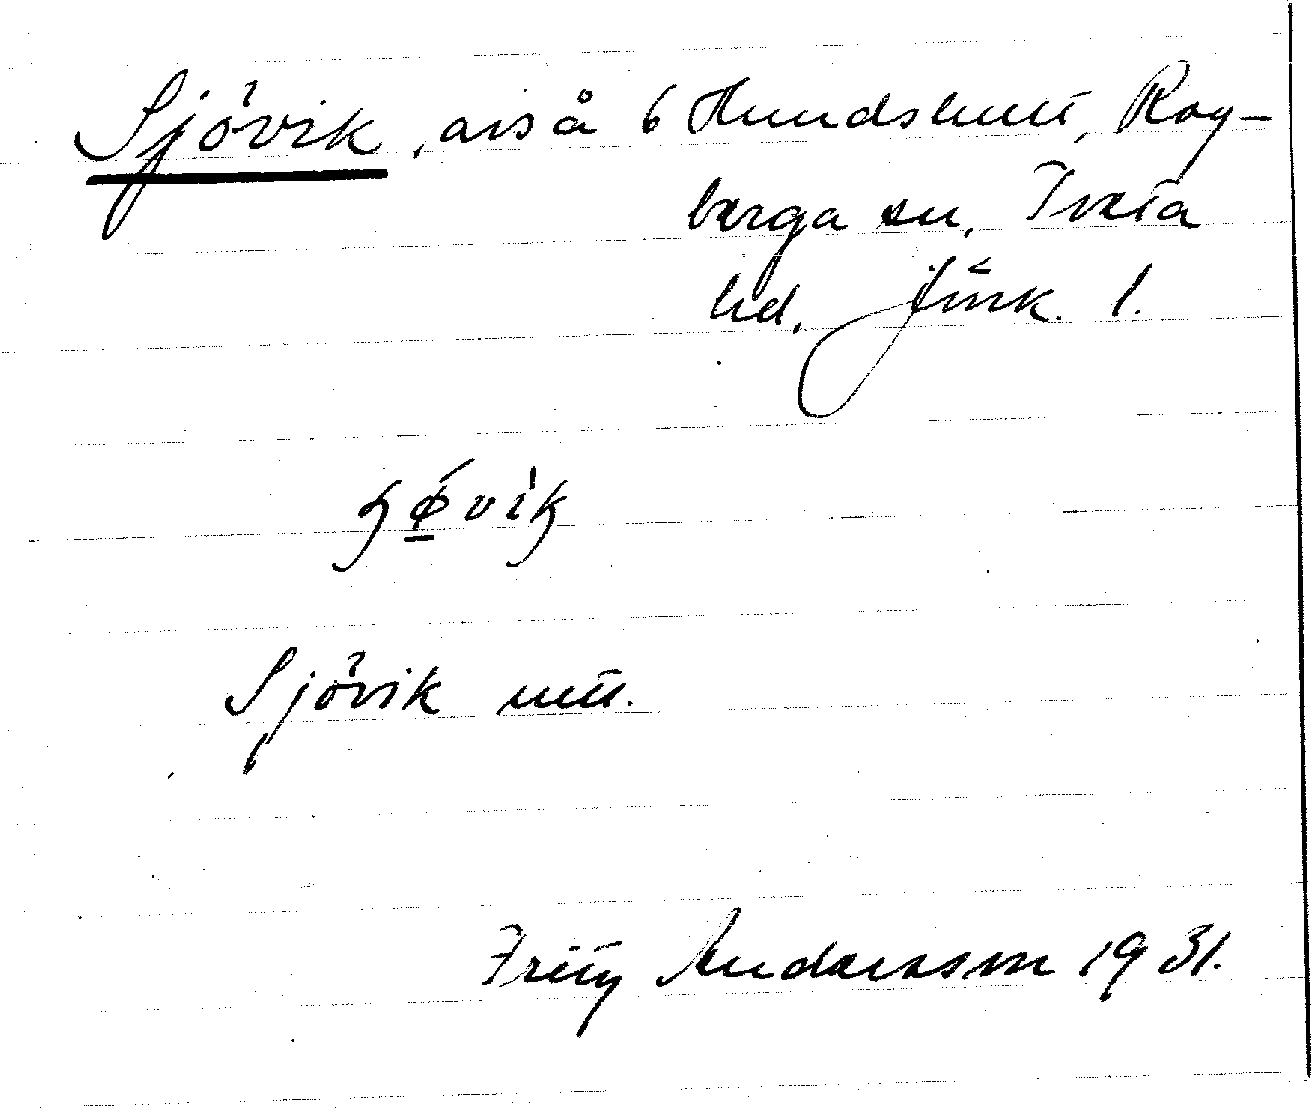 Sjövik, avs å 6 Hundshult, Rog-
berga sn, Tveta
hd, Jönk. l.
ɧǿ̱vìk
Sjövik utt.
Fritz Andersson 1931.